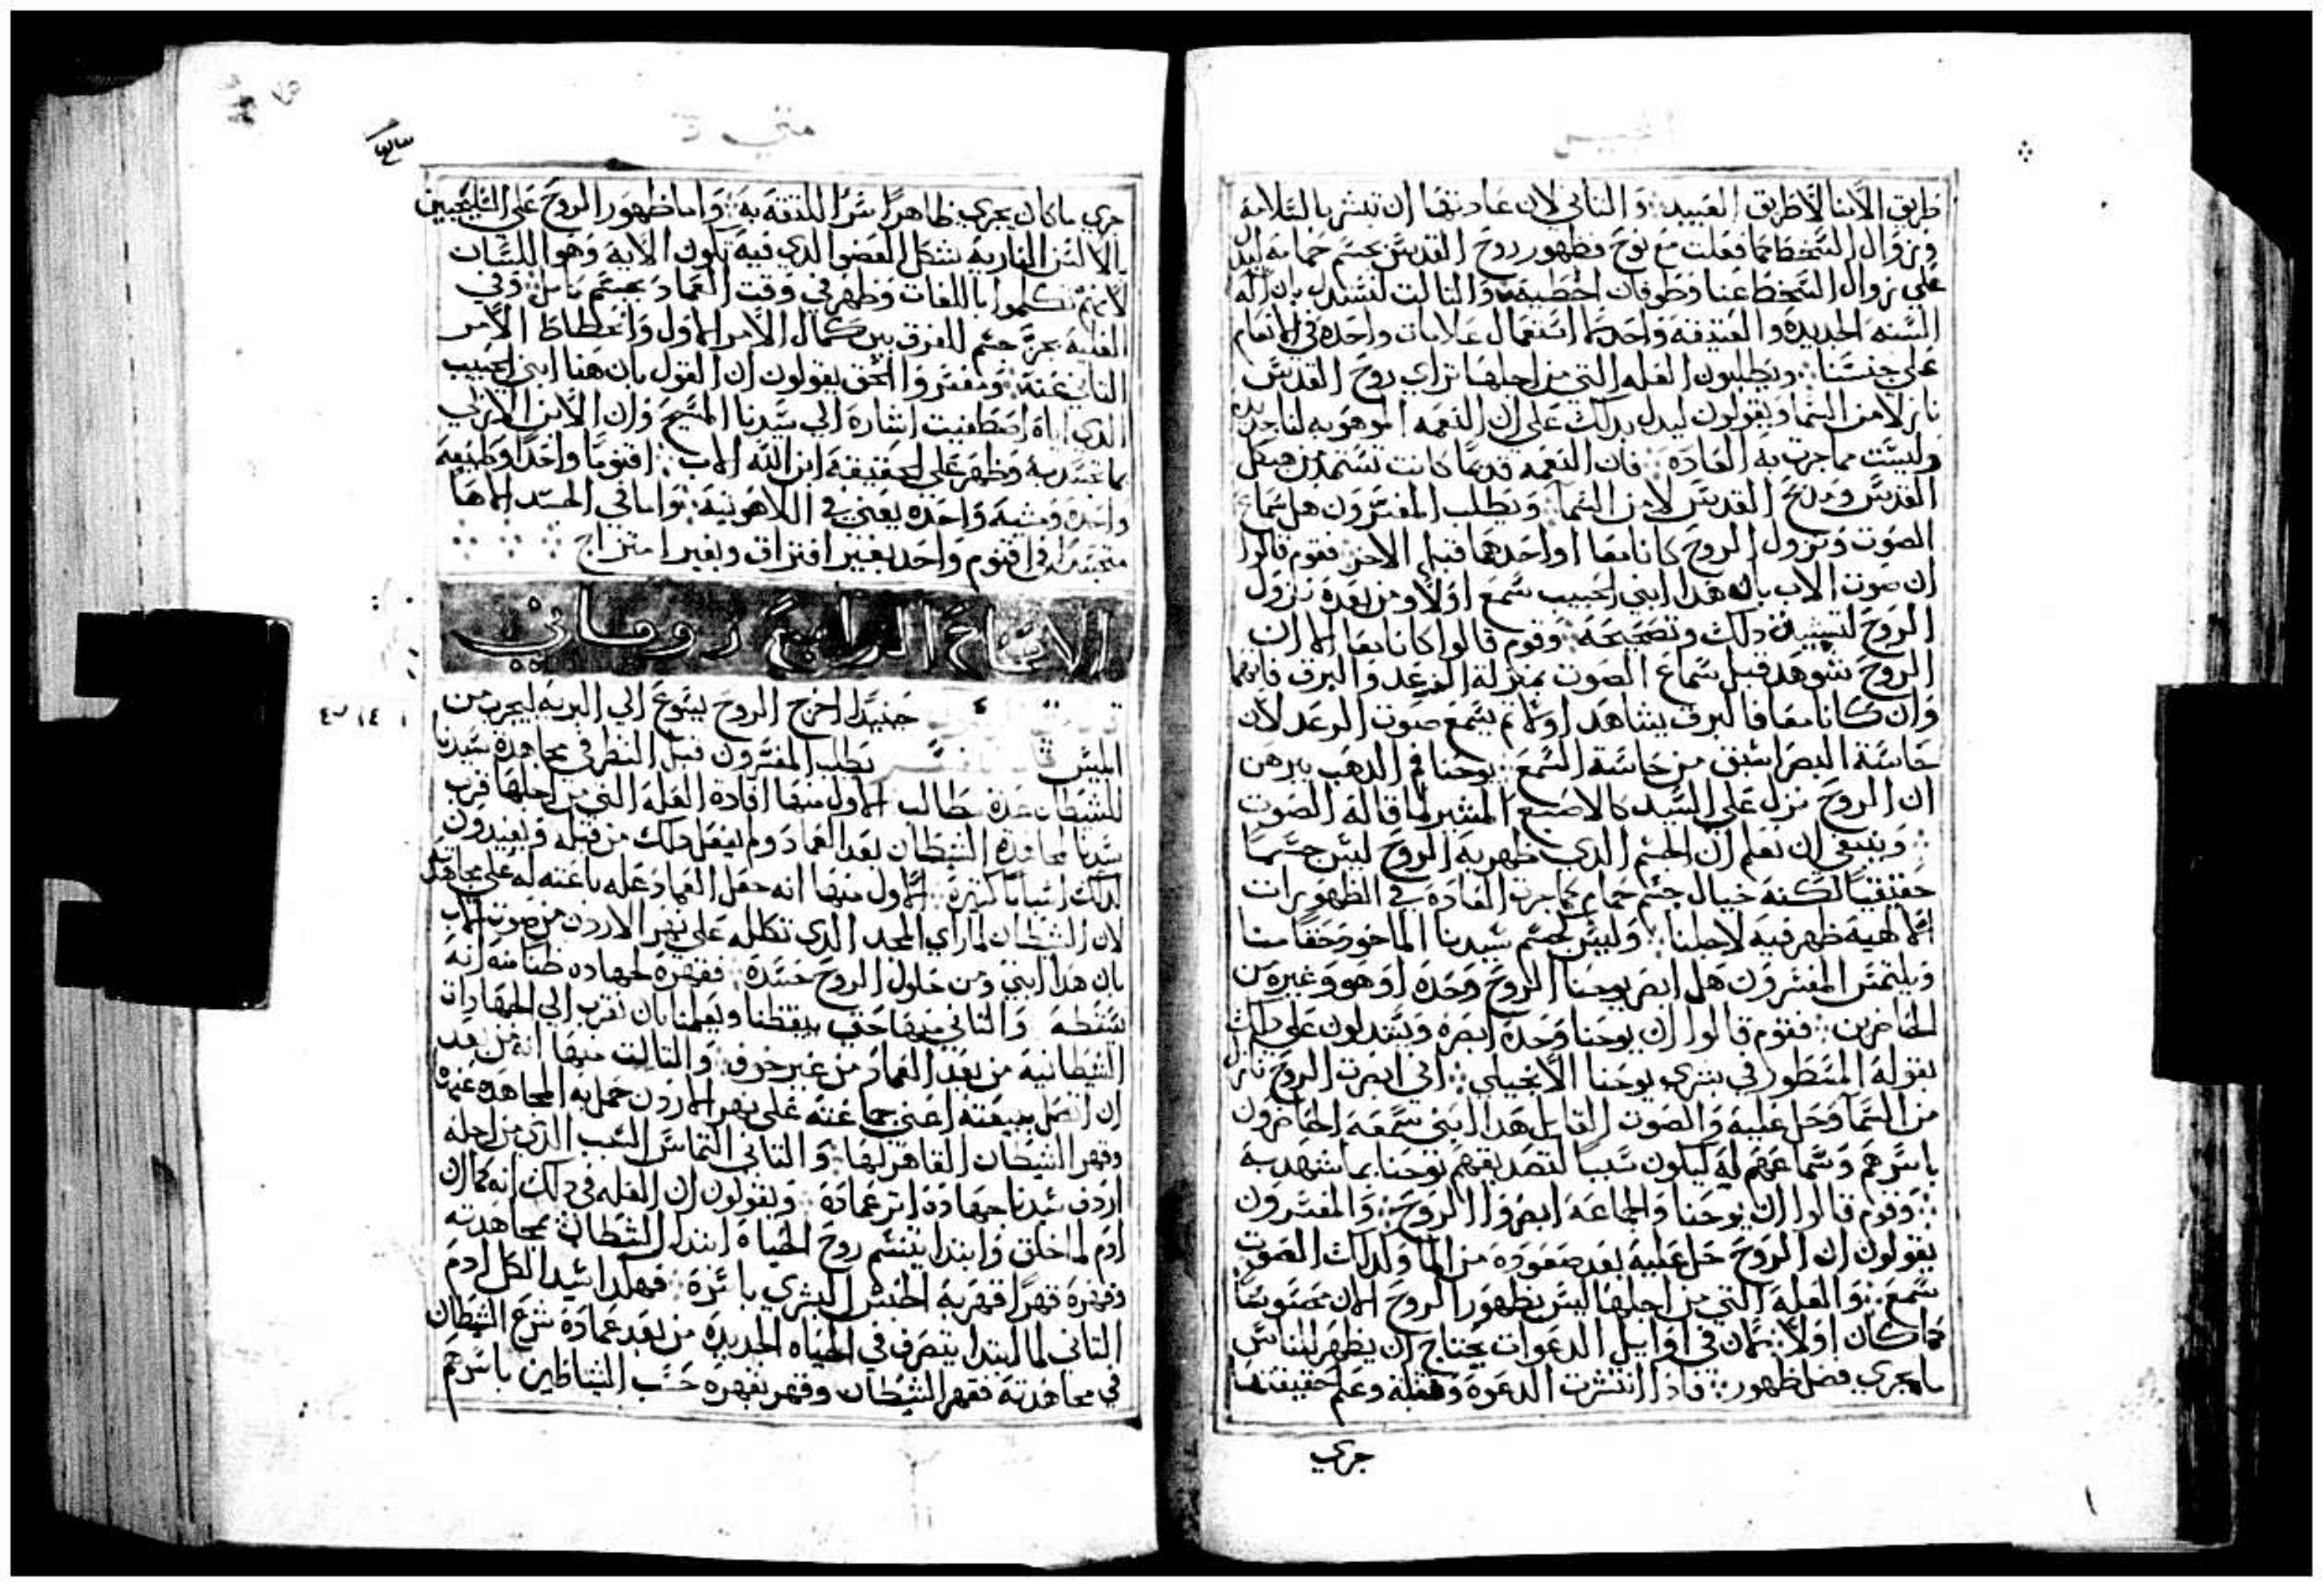 طريق الابنا لا طريق العبيد والتاني لان عادتها ان تبشر بالسلامة
وزوال السخط كما فعلت مع نوح فظهور روح القدس بجسم حمامه ليدل
علي زوال السخط عنا وطوفان الخطية والتالت لنستدل بان اله
السنه الجديده والعتيقه واحد استعمال علامات واحده في الانعام
علي جنسنا ويطلبون العله التي من اجلها تراي روح القدس
نازلا من السما ويقولون ليدل بدلك علي ان النعمه الموهوبه لنا جديده
وليست مما جرت به العاده فان النعمه قديما كانت تستمد من هيكل
القدس ومدبح القدس لا من السما ويطلب المفسرون هل سماع
الصوت ونزول الروح كانا معا او احدهما قبل الاخر فقوم قالوا
ان صوت الاب بان هدا ابني الحبيب سمع اولا ومن بعده نزول
الروح لتبيين دلك وتصحيحه وقوم قالوا كانا معا الا ان
الروح شوهد قبل سماع الصوت بمنزلة الرعد والبرق فانهما
وان كانا معا فالبرق يشاهد اولا تم يسمع صوت الرعد لان
حاسة البصر اسبق من حاسة السمع يوحنا فم الدهب يبرهن
ان الروح نزل علي السيد كالاصبع المشير لما قاله الصوت
وينبغي ان نعلم ان الجسم الدي ظهر به الروح ليس جسما
حقيقيا لكنه خيال جسم حمام كما جرت العاده في الظهورات
الالهية ظهر فيه لاجلنا وليس كجسم سيدنا الماخود حقا منا
ويلتمس المفسرون هل ابصر يوحنا الروح وحده او هو وغيره من
الحاضرين فقوم قالوا ان يوحنا وحده ابصره ويستدلون علي دلك
بقوله المسطور في بشري يوحنا الانجيلي اني ابصرت الروح نازل
من السما وحل عليه والصوت القايل هدا ابني سمعه الحاضرون
باسرهم وسماعهم له ليكون سببا لتصديقهم يوحنا بما شهد به
وقوم قالوا ان يوحنا والجماعه ابصروا الروح والمفسرون
يقولون ان الروح حل عليه بعد صعوده من الما وكدلك الصوت
سمع والعله التي من اجلها ليس يظهر الروح الان محسوسا
كما كان اولا لان في اوايل الدعوات يحتاج ان يظهر للناس
ما يجري فضل ظهور فادا انتشرت الدعوة وعلم حقيقتها
جري
متي
جري ما كان يجري ظاهرا سرا للتقه به واما ظهور الروح علي السليحيين
بالالسن النارية شكل العضو الدي فيه تكون الاية وهو اللسان
لانهم تكلموا باللغات وظهر في وقت العماد بجسم كامل وفي
العلية بجزء جسم للفرق بين كمال الامر الاول وانحطاط الامر
التاني عنه ومفسروا الحق يقولون ان القول بان هدا ابني الحبيب
الدي اياه اصطفيت اشارة الي سيدنا المسيح وان الابن الازلي
لما تجسد به وظهر علي الحقيقة ابن الله الاب اقنوما واحدا وطبيعة
واحدة ومشية واحده يعني في اللاهوتية واما في الجسد الاها
متجسدا في اقنوم واحد بغير افتراق وبغير امتزاج
الاصحاح الرابع روماني
حينيد اخرج الروح يسوع الي البريه ليجرب من
ابليس يطلب المفسرون قبل النظر في مجاهدة سيدنا
للشيطان عدة مطالب الاول منها افادة العله التي من اجلها قرب
سيدنا لمجاهدة الشيطان بعد العماد ولم يفعل دلك من قبله ويعيدون
لدلك اسبابا كتيرة الاول منها انه جعل العماد عله باعته له علي مجاهدته
لان الشيطان لما راي المجد الدي تكلله علي نهر الاردن من صوت الاب
بان هدا ابني ومن حلول الروح حسده فقهره لجهاده ظنا منه انه
يسقطه والتاني منها حتي يوقظنا ويعلمنا بان نقرب الي الجهادات
الشيطانية من بعد العماد من غير خوف والتالت منها انه من بعد
ان اتصل ببيعته اعني جماعته علي نهر الاردن حمل به المجاهده عنها
وقهر الشيطان القاهر لها والتاني التماس السبب الدي من اجله
اردف سيدنا جهاده اتر عماده ويقولون ان العله في دلك انه كما ان
ادم لما خلق وابتدا يتنسم روح الحياه ابتدا الشيطان بمجاهدته
وقهره قهرا قهر به الجنس البشري باسره فهكدا سيد الكل ادم
التاني لما ابتدا يتصرف في الحياه الجديده من بعد عماده شرع الشيطان
في مجاهدته فقهر الشيطان وقهر بقهره حسب الشياطين باسرهم